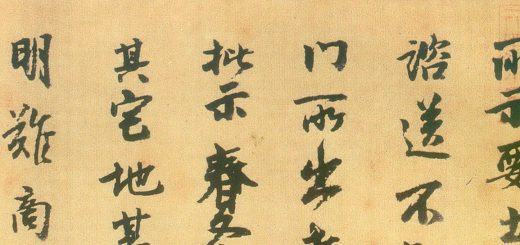 所示要
諮送不
门所出
批示春
其它地其
明難商